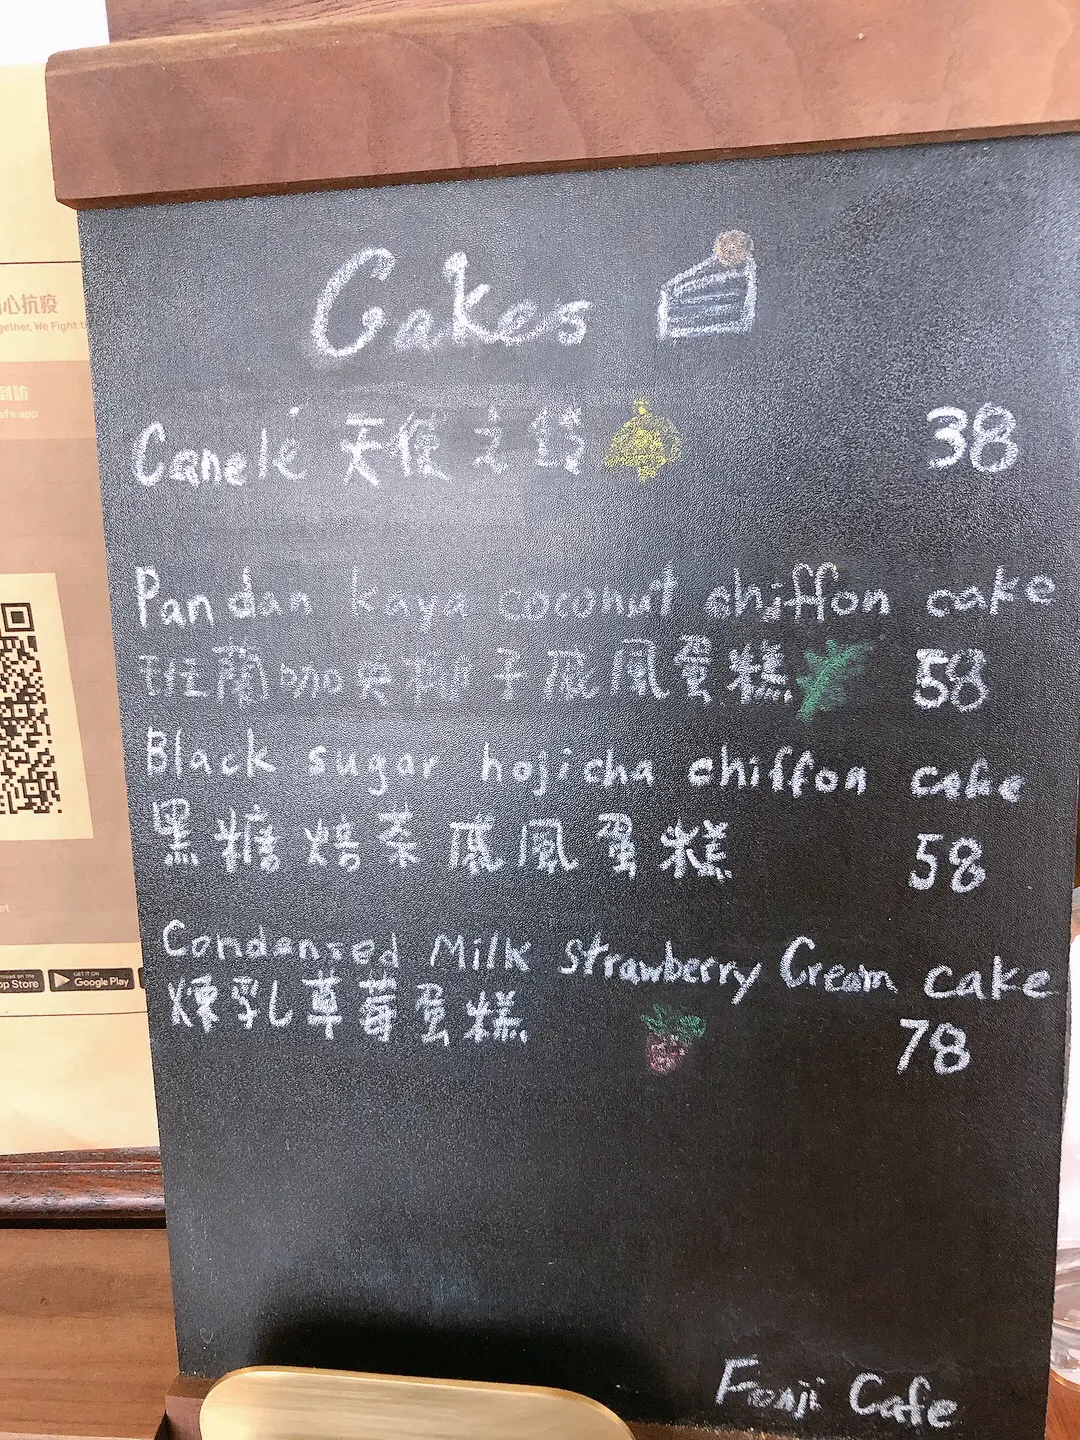 Cakes
Canelé 天使之鈴 38
Pandan kaya coconut chiffon cake
班蘭咖央椰子戚風蛋糕 58
Black sugar hojicha chiffon cake
黑糖焙茶戚風蛋糕 58
Condensed Milk Strawberry Cream cake
煉乳草莓蛋糕
78
Fonji Cafe
心抗疫
gether, We Fight t
到訪
afe app
et
pp Store
GET IT ON
Google Play